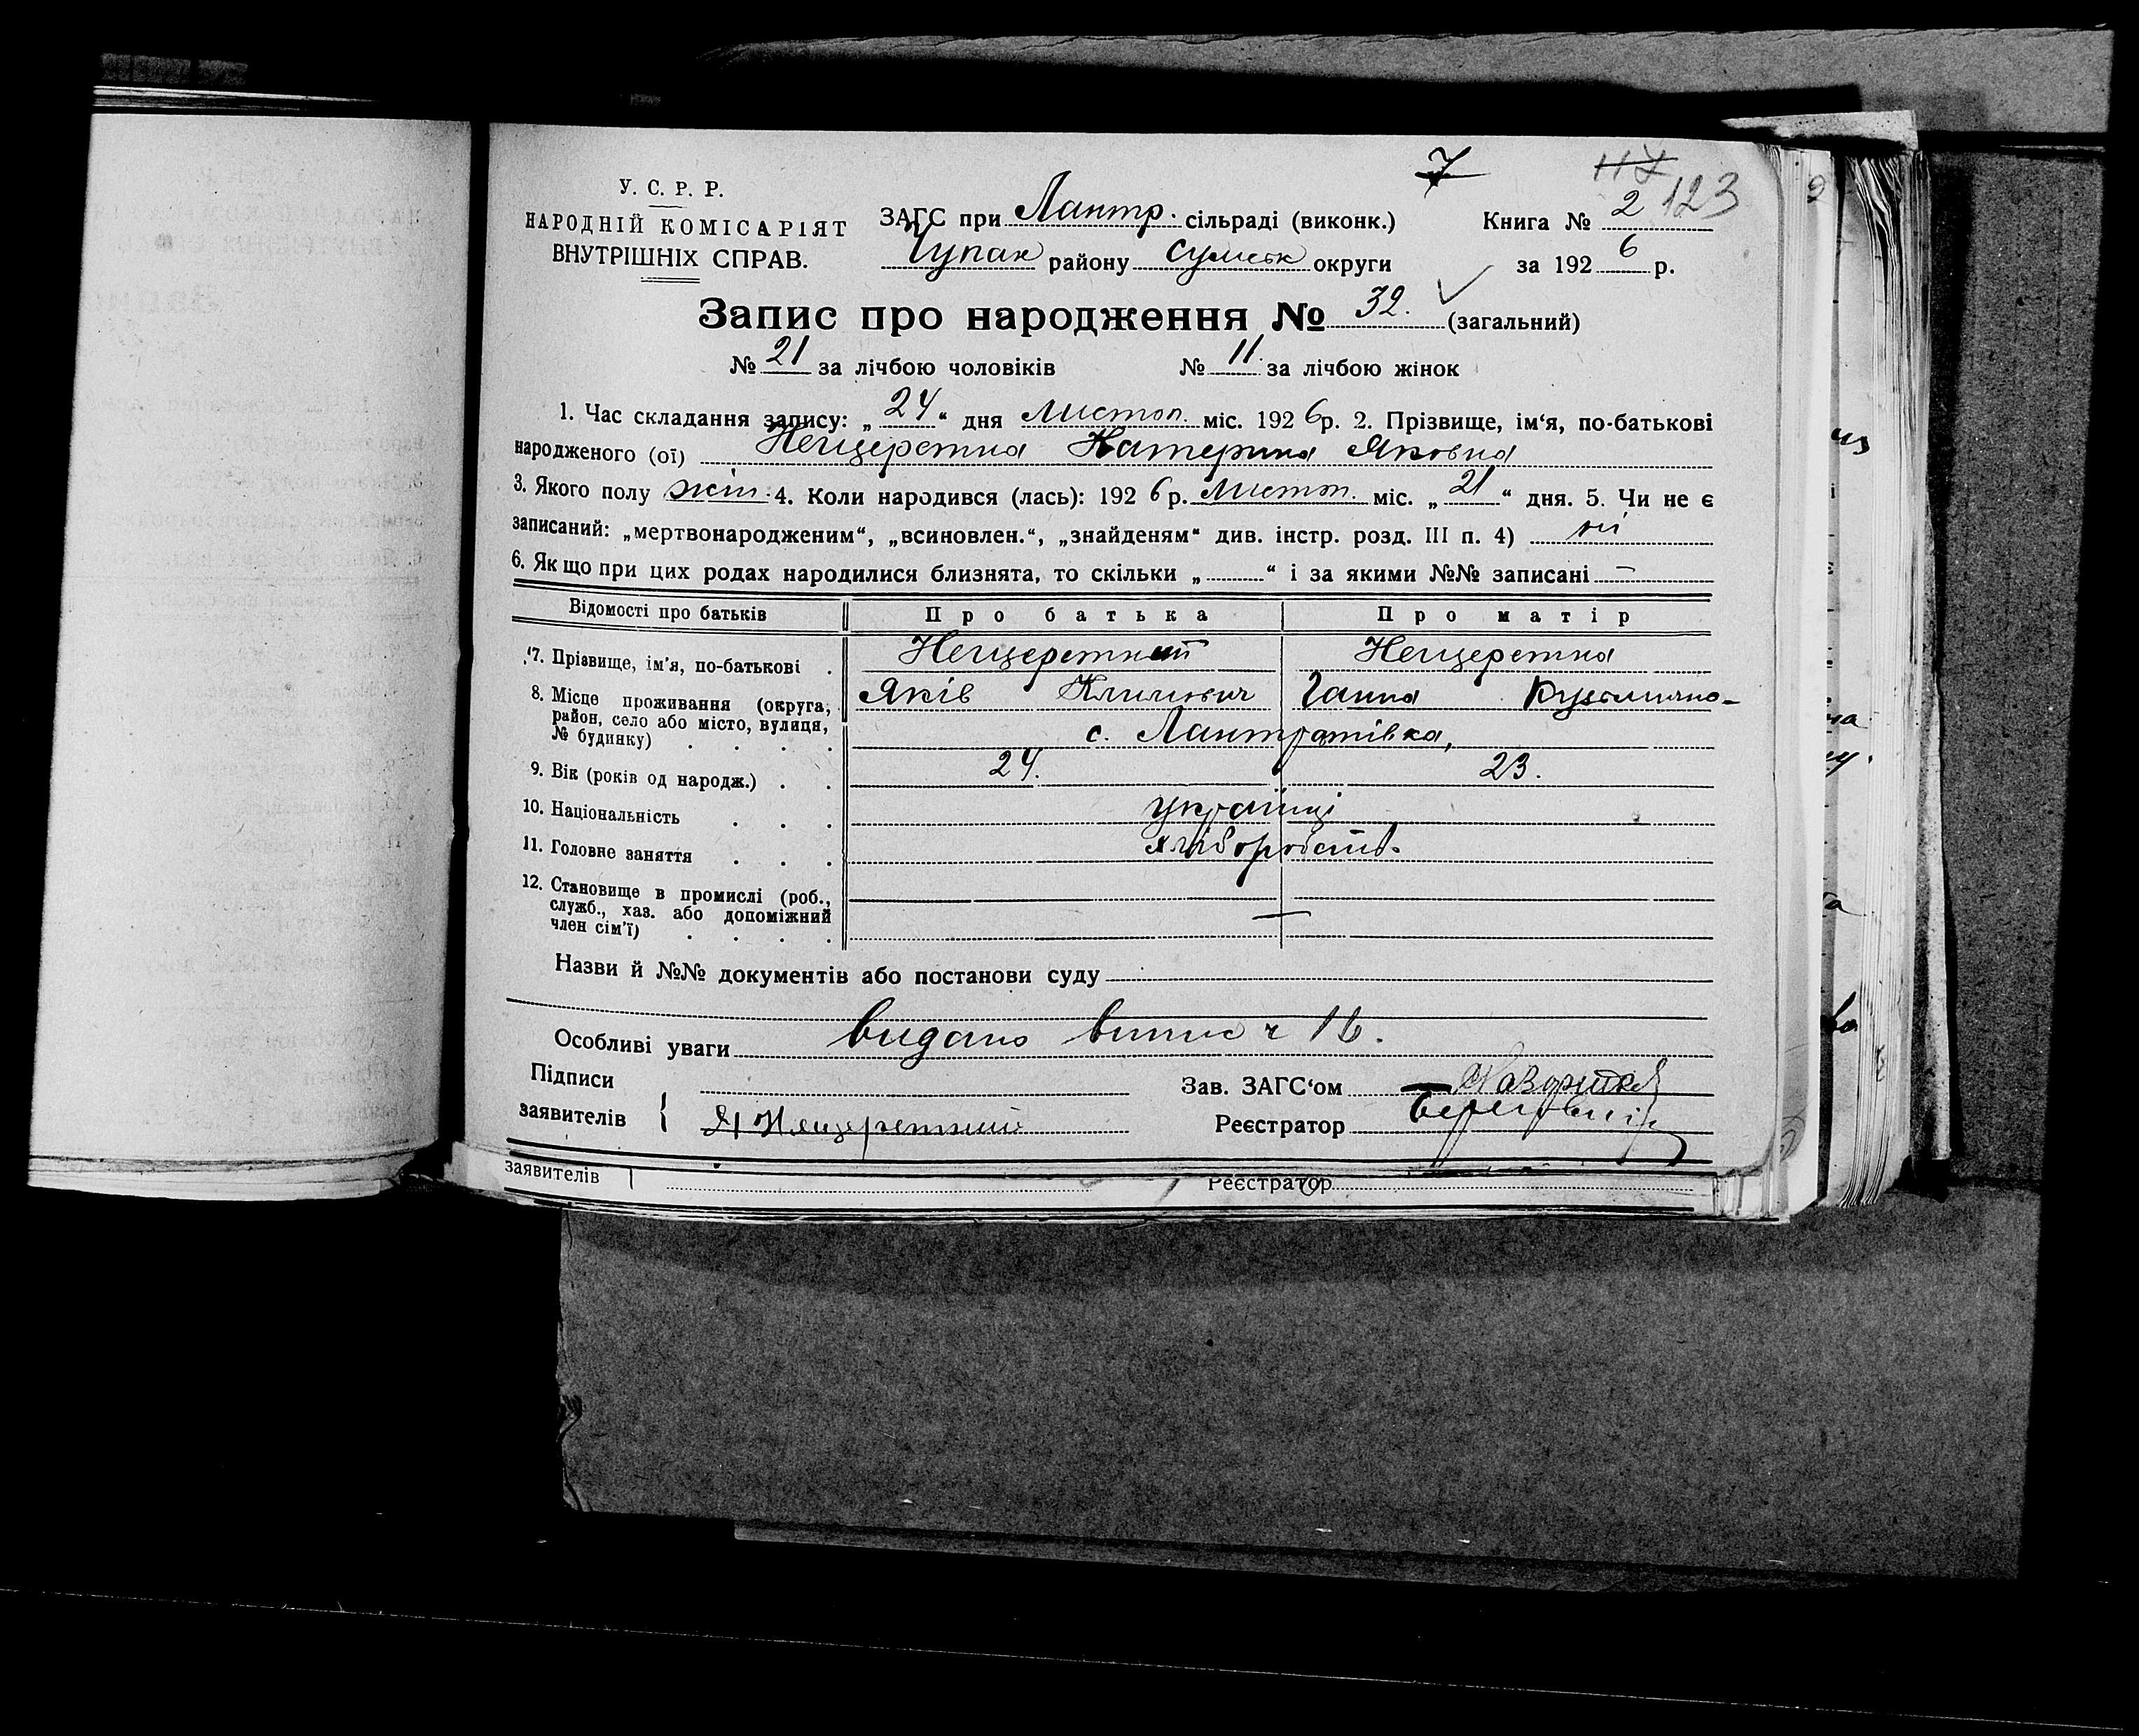 7
117
123
У. С. Р. Р.
НАРОДНІЙ КОМІСАРІЯТ
ВНУТРІШНІХ СПРАВ.
ЗАГС при Лантр. сільраді (виконк.)
Чупах району Сумськ округи
Книга № 2
за 1926 р.
Запис про народження № 32. (загальний)
№ 21 за лічбою чоловіків № 11. за лічбою жінок
1. Час складання запису: „24“ дня Листоп. міс. 1926 р. 2. Прізвище, ім‘я, по-батькові
народженого (ої) Нещеретна Катерина Яковна
3. Якого полу жін. 4. Коли народився (лась): 1926 р. Листоп. міс. „21“ дня. 5. Чи не є
записаний: „мертвонародженим“, „всиновлен.“, „знайденям“ див. інстр. розд. III п. 4) ні
6. Якщо при цих родах народилися близнята, то скільки „......“ і за якими №№ записані —
Відомості про батьків Про батька Про матір
7. Прізвище, ім’я, по-батькові . Нещеретний Нещеретна
8. Місце проживання (округа, район, село або місто, вулиця, № будинку) Яків Климович Ганна Кузьмична-
с. Лантратівка,
9. Вік (років од народж.) . . 24. 23.
10. Національність . . . українці
11. Головне заняття . . . хліборобств.
12. Становище в промислі (роб., служб., хаз. або допоміжний член сім’ї) . . . . —
Назви й №№ документів або постанови суду
Особливі уваги видано випис ч 16.
Підписи
заявителів { Я Нещеретний
Зав. ЗАГС‘ом
Реєстратор
заявителів
Реєстратор